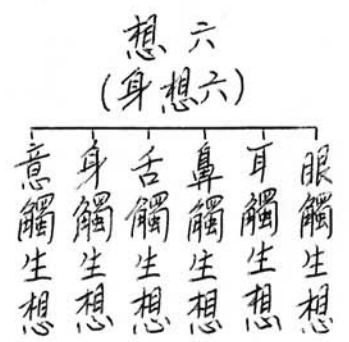 六想
(六想身)
眼觸生想
耳觸生想
鼻觸生想
舌觸生想
身觸生想
意觸生想